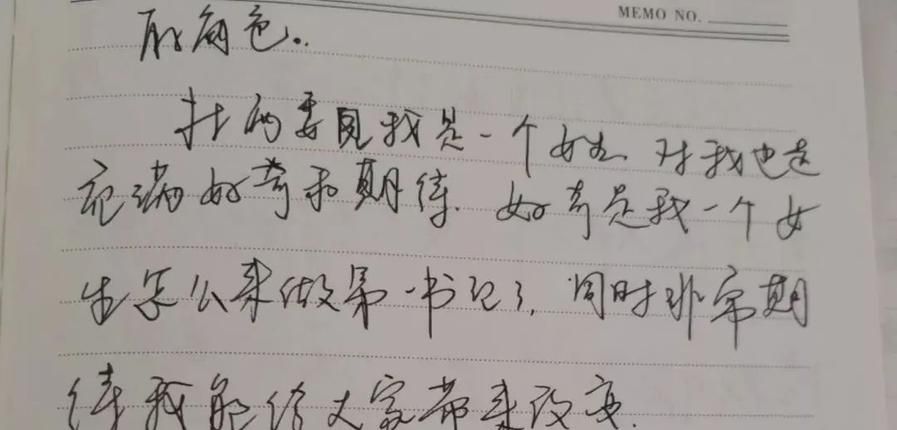 MEMO NO.
的角色..
村两委见我是一个女生 对我也是
充满好奇和期待. 好奇是我一个女
生怎么来做第一书记了, 同时非常期
待我能给大家带来改变.